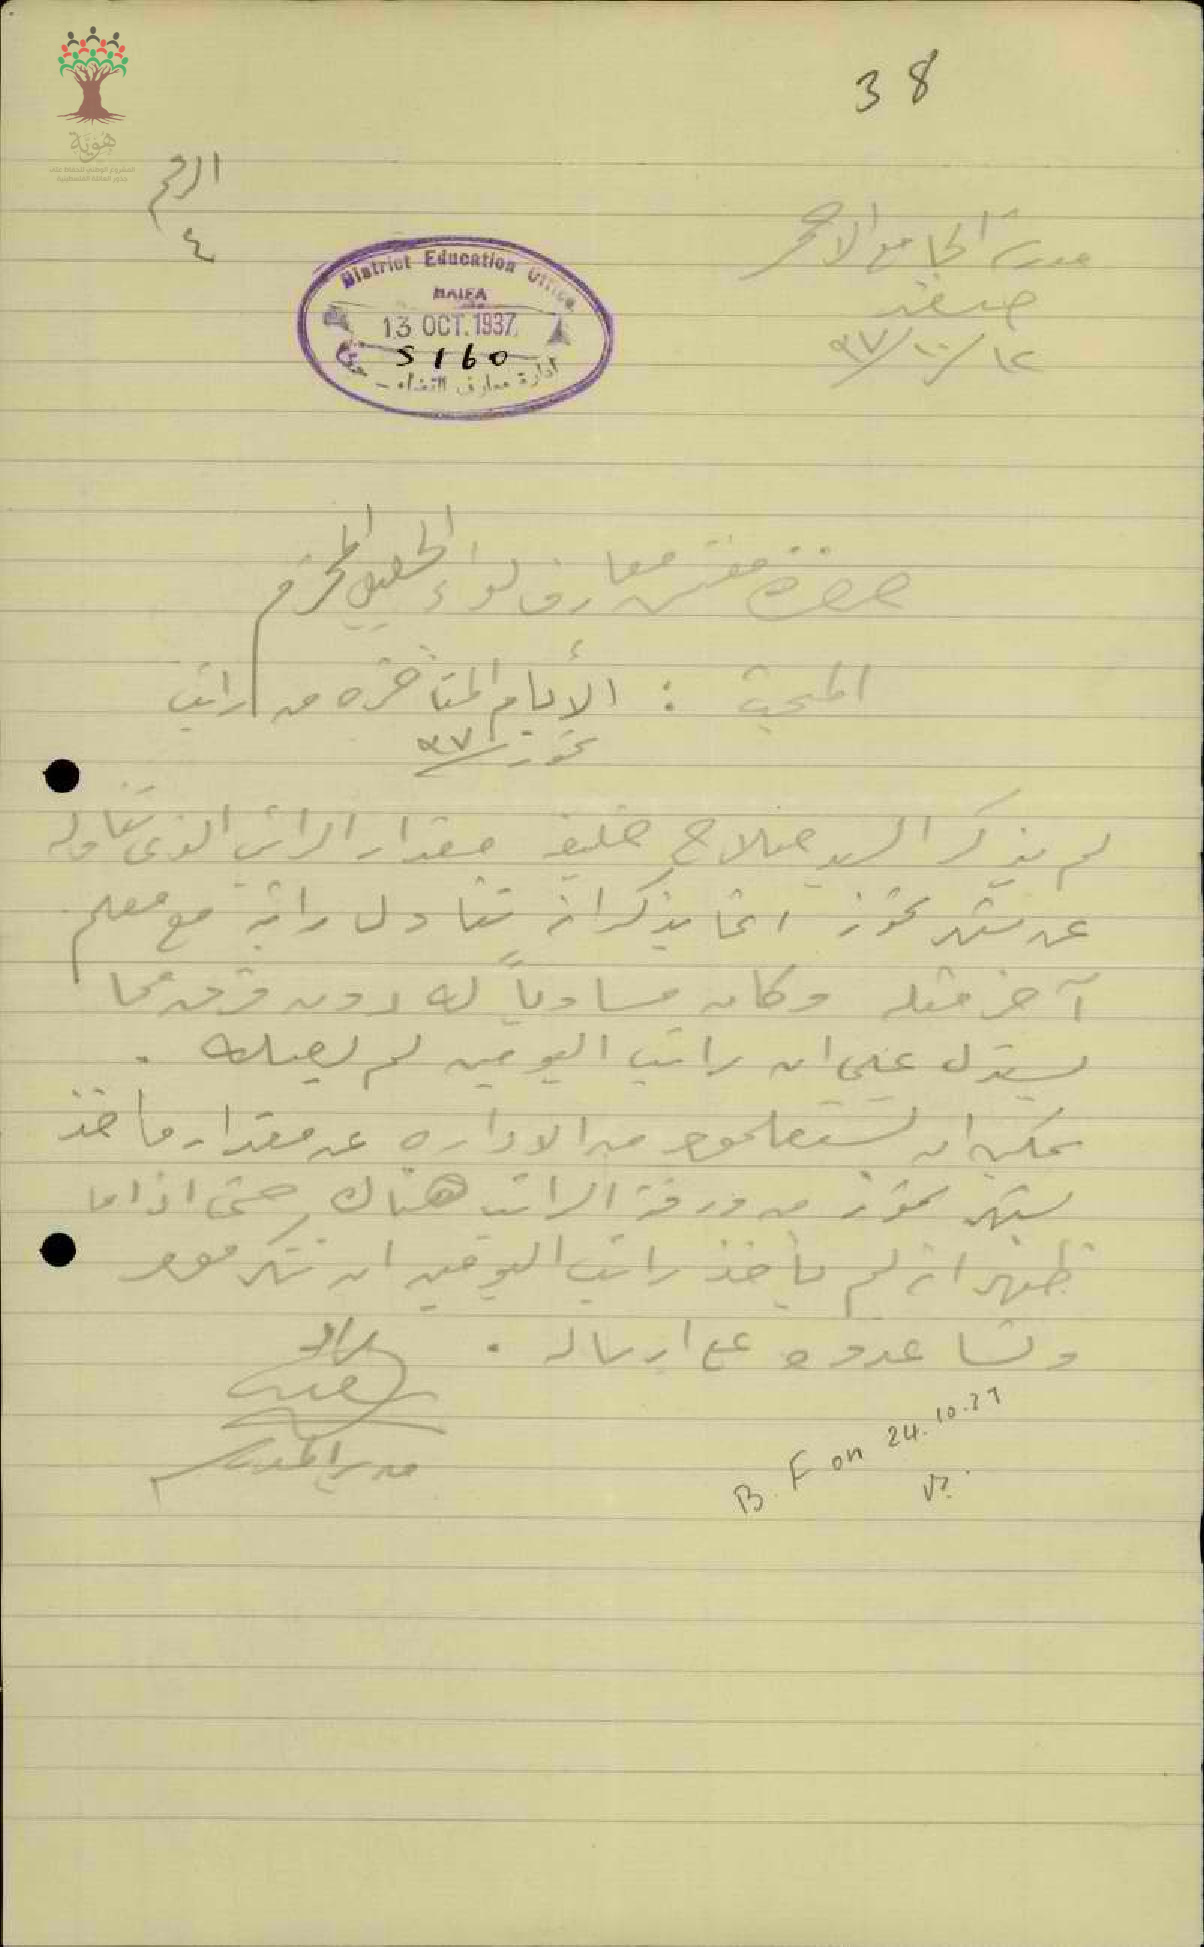 38
هوية
المشروع الوطني للحفاظ على
جذور العائلة الفلسطينية
الرقم
٤
مدرسة الجامع الاحمر
صفد
١٢/١٠/٩٣٧
District Education Office
HAIFA
13 OCT. 1937
5160
ادارة معارف القضاء - حيفا
حضرة مفتش معارف لواء الجليل المحترم
المبحث : الأيام المتأخره من راتب
تموز ٩٣٧
لم يذكر السيد صلاح خليفه مقدار الراتب الذي تناوله
عن شهر تموز انما يذكر انه تناول راتبه مع معلم
آخر مثله وكان مساوياً له دون فرق مما
يستدل على ان راتب اليومين لم يصله .
يمكن ان تستعلموا من الاداره عن مقدار ما اخذ
شهر تموز من ورقة الراتب هناك حتى اذا ما
ظهر انه لم يأخذ راتب اليومين ان تتكرموا
وتساعدوه على ارساله .
مدير المدرسة
B. F on 24.10.37